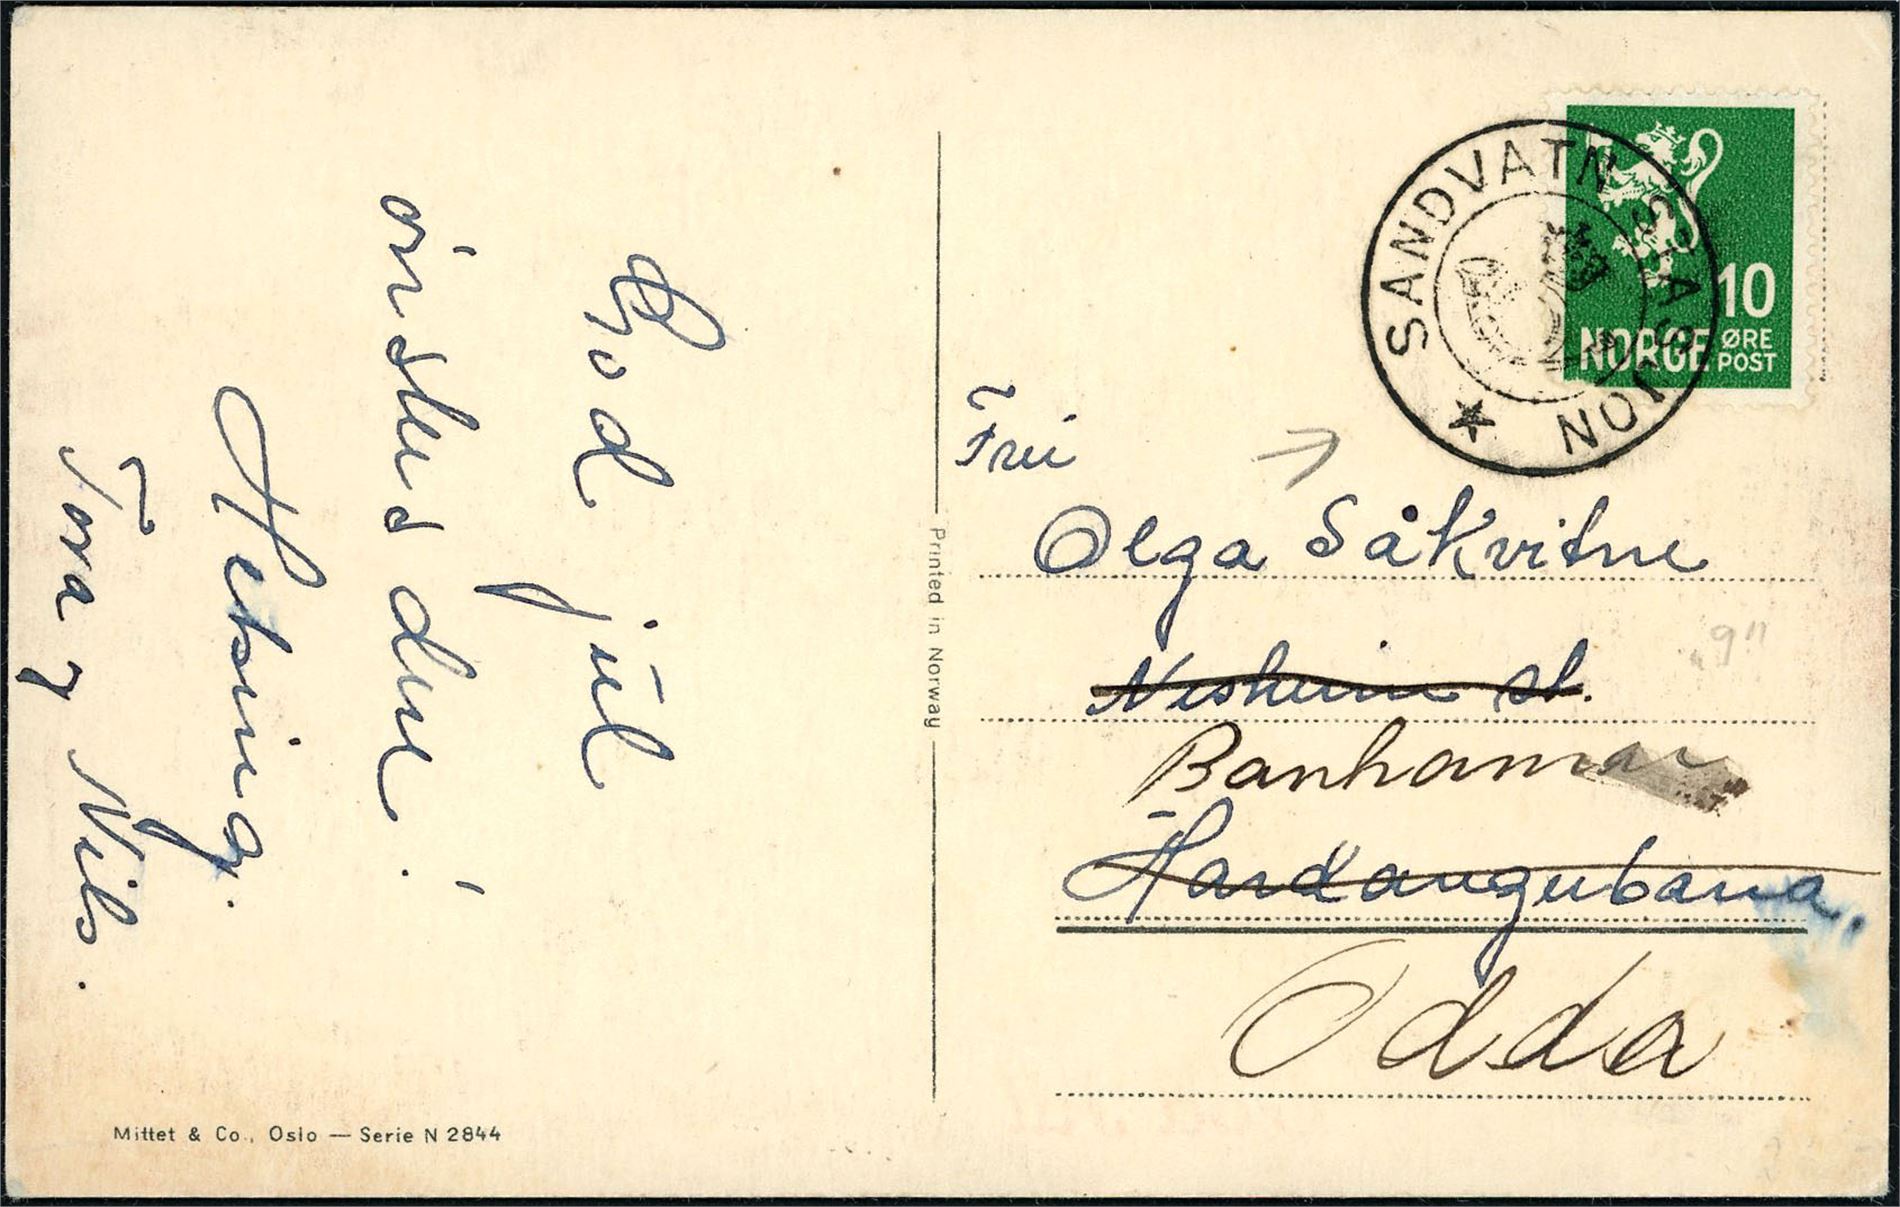 God jul
ønskes dere!
Helsing.
Tora og Nils.
Mittet & Co., Oslo — Serie N 2844
Printed in Norway
SANDVATN STASJON
10
NORGE ØRE
POST
Frú
Olga Såkvitne
"9"
Nesheim st.
Banhamar
Hardangerbana.
Odda